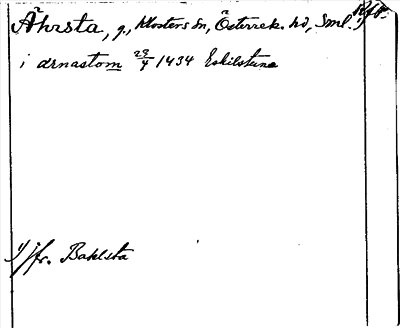 Åhrsta, g., Klosters sn, Österrek. hd, Sml. 1)
i arnastom 29/4 1434 Eskilstuna
1) jfr. Bahlsta